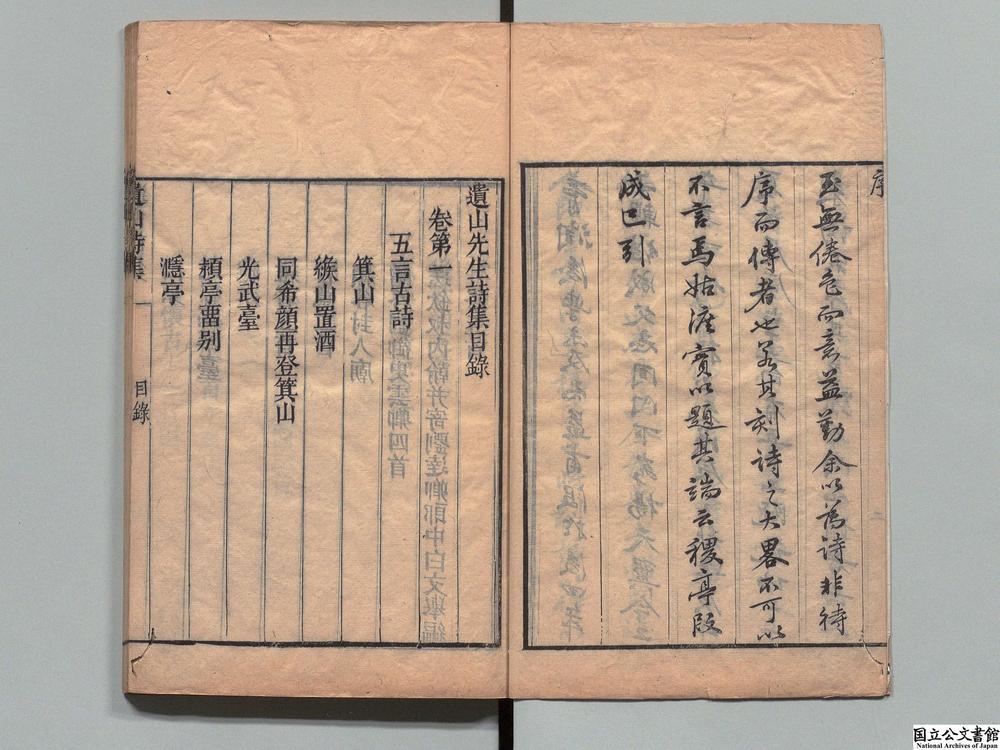 序
至無倦色而意益勤余以為詩非待
序而傳者也若其刻詩之大畧不可以
不言焉姑濡實以題其端云稷亭段
成己引
遺山先生詩集目錄
卷第一
五言古詩
箕山
緱山置酒
同希顔再登箕山
光武臺
頴亭畱别
㶏亭
遺山詩集
一
目錄
国立公文書館
National Archives of Japan